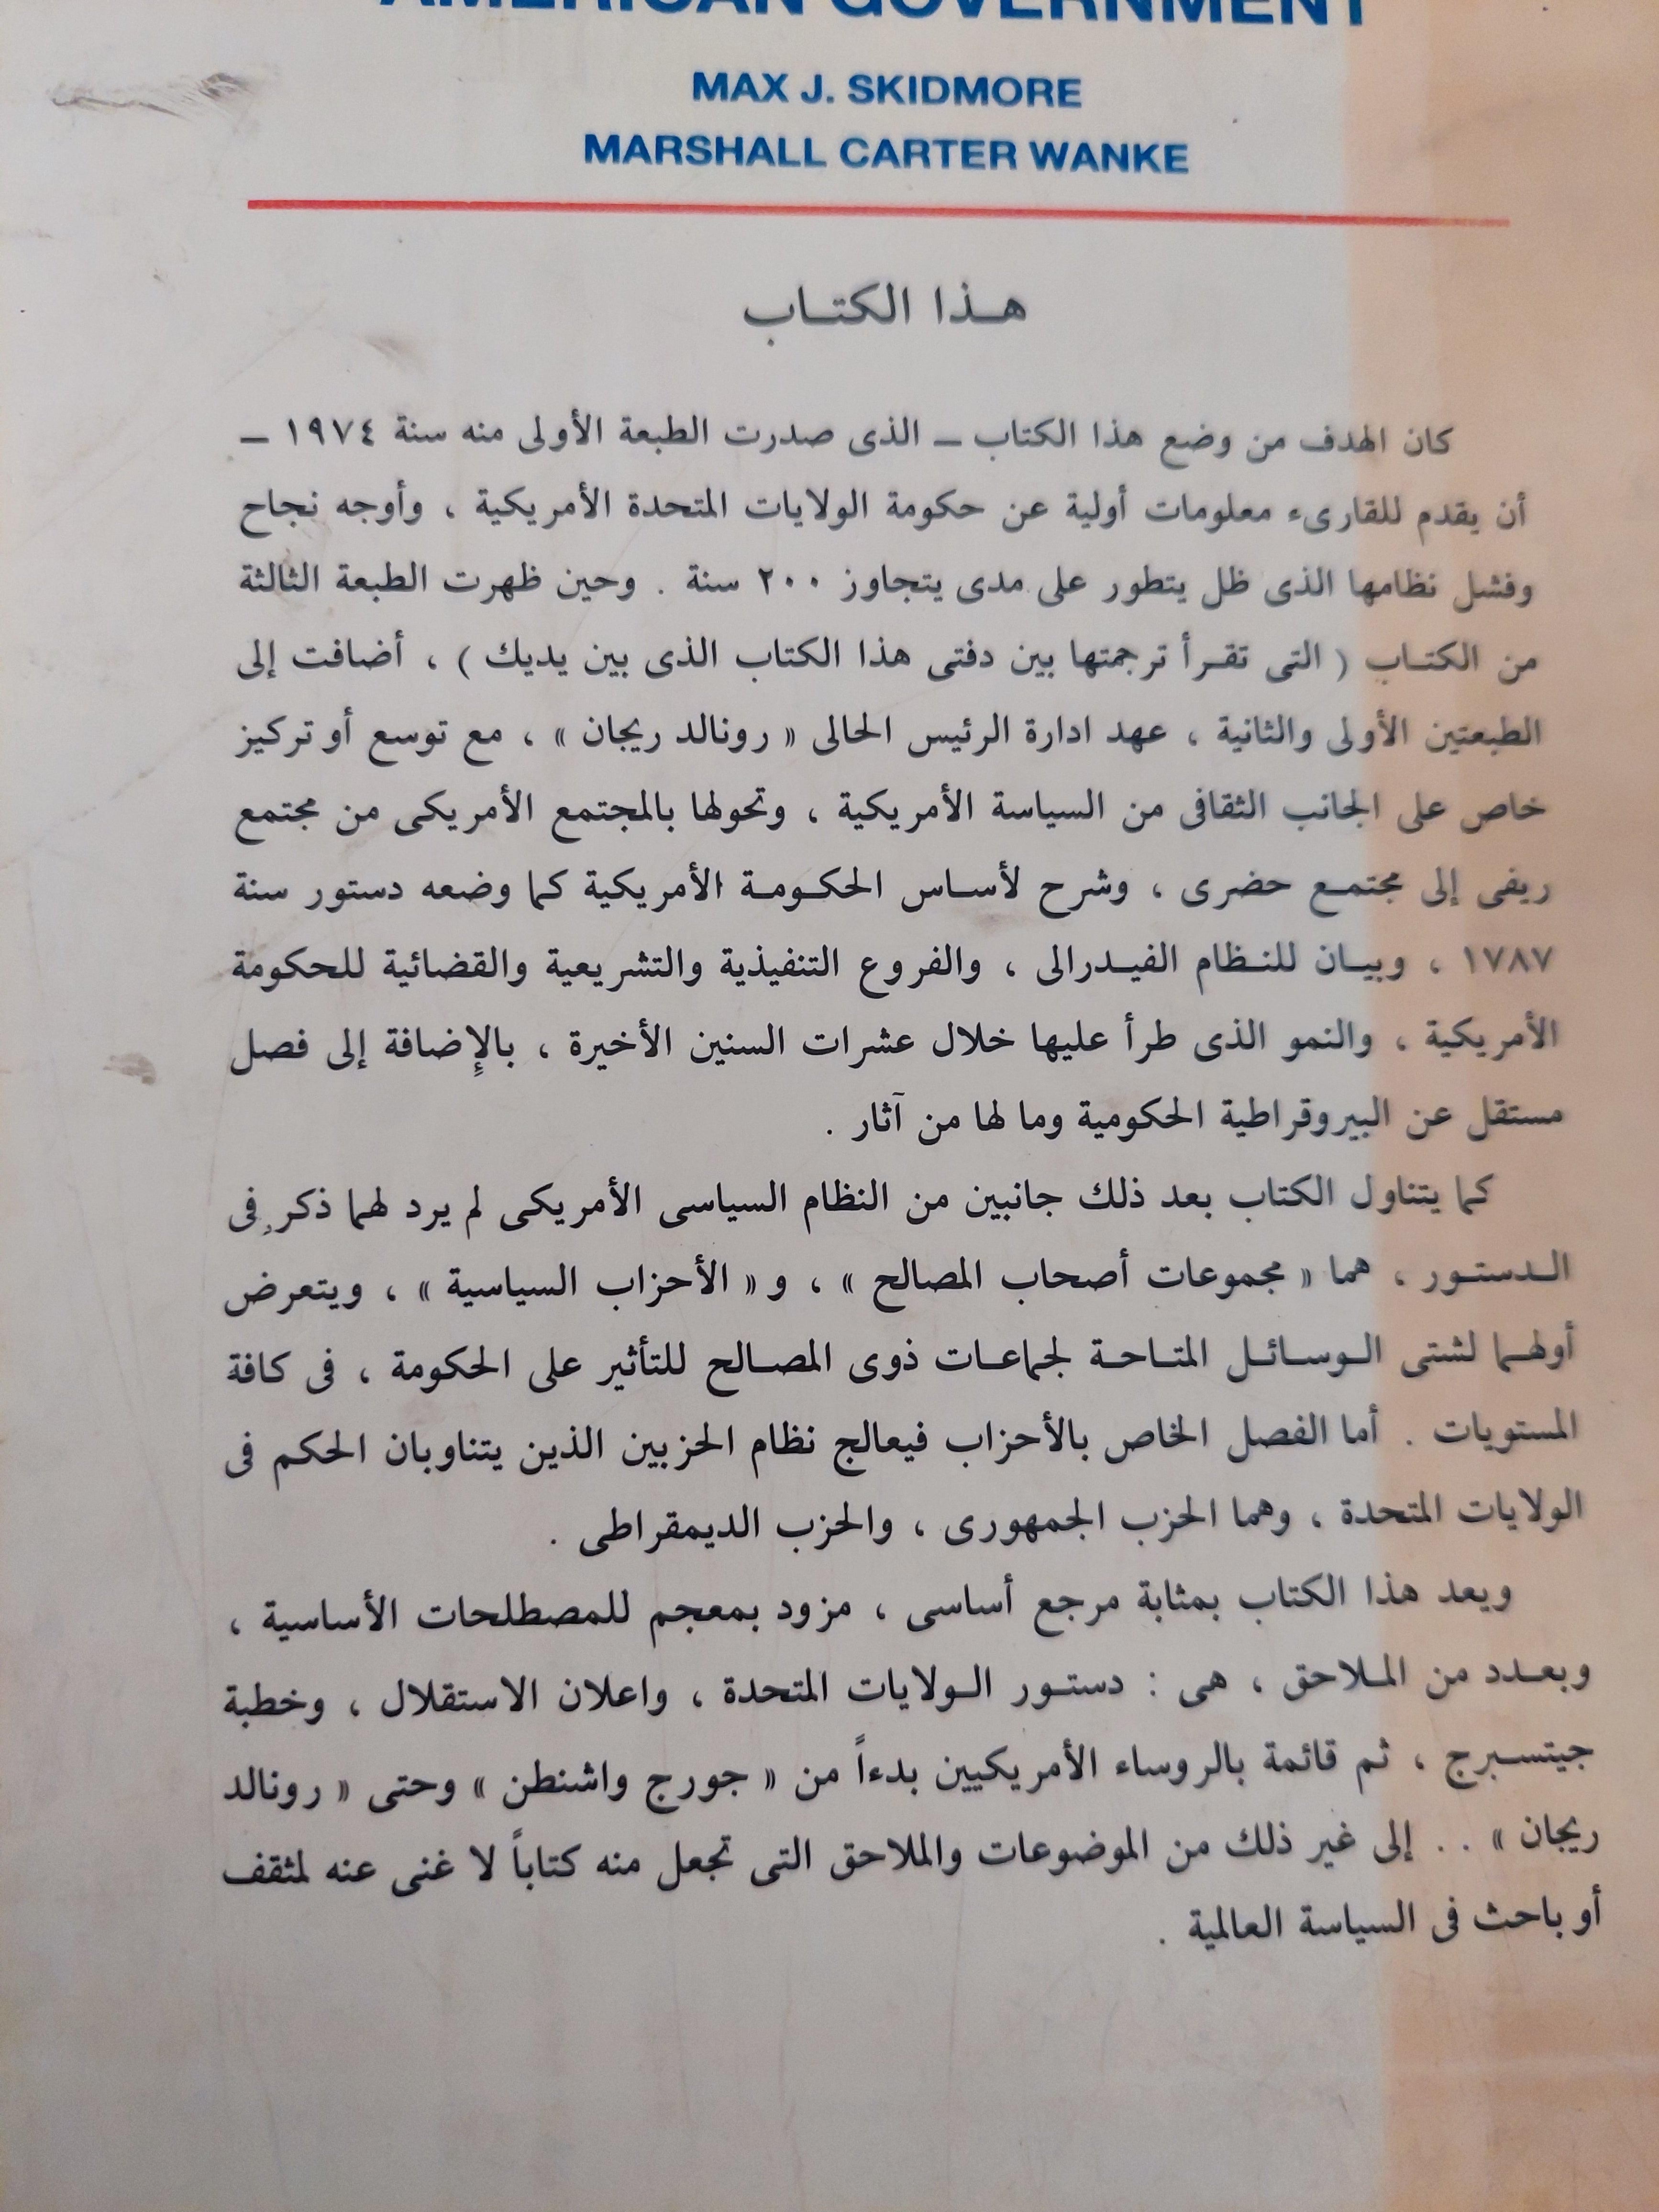 AMERICAN GOVERNMENT
MAX J. SKIDMORE
MARSHALL CARTER WANKE
هذا الكتاب
كان الهدف من وضع هذا الكتاب ــ الذى صدرت الطبعة الأولى منه سنة ١٩٧٤ ــ
أن يقدم للقارىء معلومات أولية عن حكومة الولايات المتحدة الأمريكية ، وأوجه نجاح
وفشل نظامها الذى ظل يتطور على مدى يتجاوز ٢٠٠ سنة . وحين ظهرت الطبعة الثالثة
من الكتاب ( التى تقرأ ترجمتها بين دفتى هذا الكتاب الذى بين يديك ) ، أضافت إلى
الطبعتين الأولى والثانية ، عهد ادارة الرئيس الحالى « رونالد ريجان » ، مع توسع أو تركيز
خاص على الجانب الثقافى من السياسة الأمريكية ، وتحولها بالمجتمع الأمريكى من مجتمع
ريفى إلى مجتمع حضرى ، وشرح لأساس الحكومة الأمريكية كما وضعه دستور سنة
١٧٨٧ ، وبيان للنظام الفيدرالى ، والفروع التنفيذية والتشريعية والقضائية للحكومة
الأمريكية ، والنمو الذى طرأ عليها خلال عشرات السنين الأخيرة ، بالإضافة إلى فصل
مستقل عن البيروقراطية الحكومية وما لها من آثار .
كما يتناول الكتاب بعد ذلك جانبين من النظام السياسى الأمريكى لم يرد لهما ذكر فى
الدستور ، هما « مجموعات أصحاب المصالح » ، و « الأحزاب السياسية » ، ويتعرض
أولهما لشتى الوسائل المتاحة لجماعات ذوى المصالح للتأثير على الحكومة ، فى كافة
المستويات . أما الفصل الخاص بالأحزاب فيعالج نظام الحزبين الذين يتناوبان الحكم فى
الولايات المتحدة ، وهما الحزب الجمهورى ، والحزب الديمقراطى .
ويعد هذا الكتاب بمثابة مرجع أساسى ، مزود بمعجم للمصطلحات الأساسية ،
وبعدد من الملاحق ، هى : دستور الولايات المتحدة ، واعلان الاستقلال ، وخطبة
جيتسبرج ، ثم قائمة بالروساء الأمريكيين بدءاً من « جورج واشنطن » وحتى « رونالد
ريجان » . . إلى غير ذلك من الموضوعات والملاحق التى تجعل منه كتاباً لا غنى عنه لمثقف
أو باحث فى السياسة العالمية .